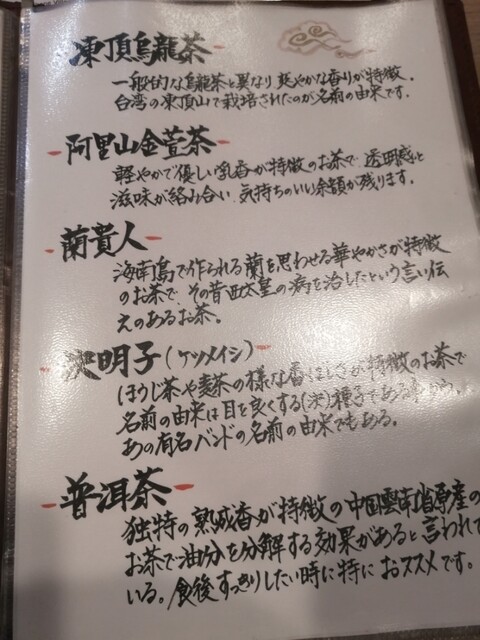 凍頂烏龍茶
一般的な烏龍茶と異なり、爽やかな香りが特徴。
台湾の凍頂山で栽培されたのが名前の由来です。
阿里山金萱茶
軽やかで優しい乳香が特徴のお茶で、透明感と
滋味が絡み合い、気持ちのいい余韻が残ります。
蘭貴人
海南島で作られる蘭を思わせる華やかさが特徴
のお茶で、その昔西太皇の病を治したという言い伝
えのあるお茶。
決明子(ケツメイシ)
ほうじ茶や麦茶の様な香ばしさが特徴のお茶で
名前の由来は目を良くする(決)種子である
あの有名バンドの名前の由来でもある。
普洱茶
独特の熟成香が特徴の中国雲南省原産の
お茶で油分を分解する効果があると言われて
いる。食後すっきりしたい時に特におススメです。